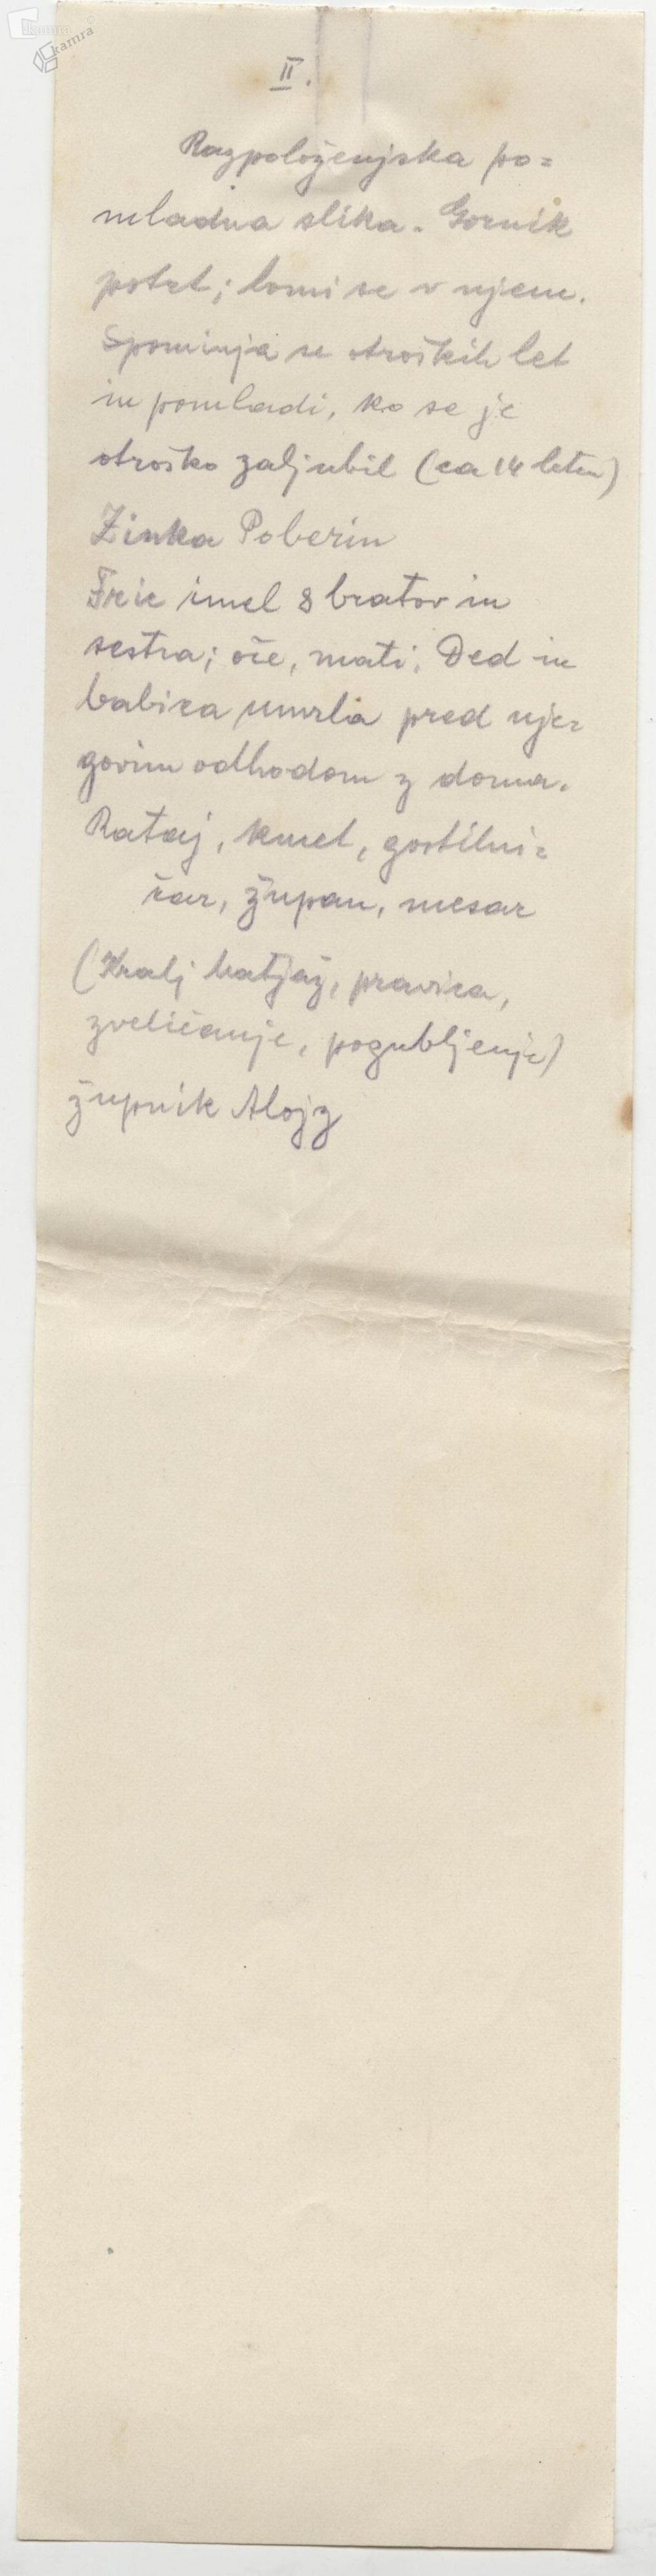 II.
Razpoloženjska po=
mladna slika. Gornik
potrt; lomi se v njem.
Spominja se otroških let
in pomladi, ko se je
otroško zaljubil (ca 14 leten)
Zinka Poberin
Fric imel 8 bratov in
sestra; oče, mati. Ded in
babica umrla pred nje=
govim odhodom z doma.
Rataj, kmet, gostilni=
čar, župan, mesar
(Kralj Matjaž, pravica,
zveličanje, pogubljenje)
župnik Alojz
kamra